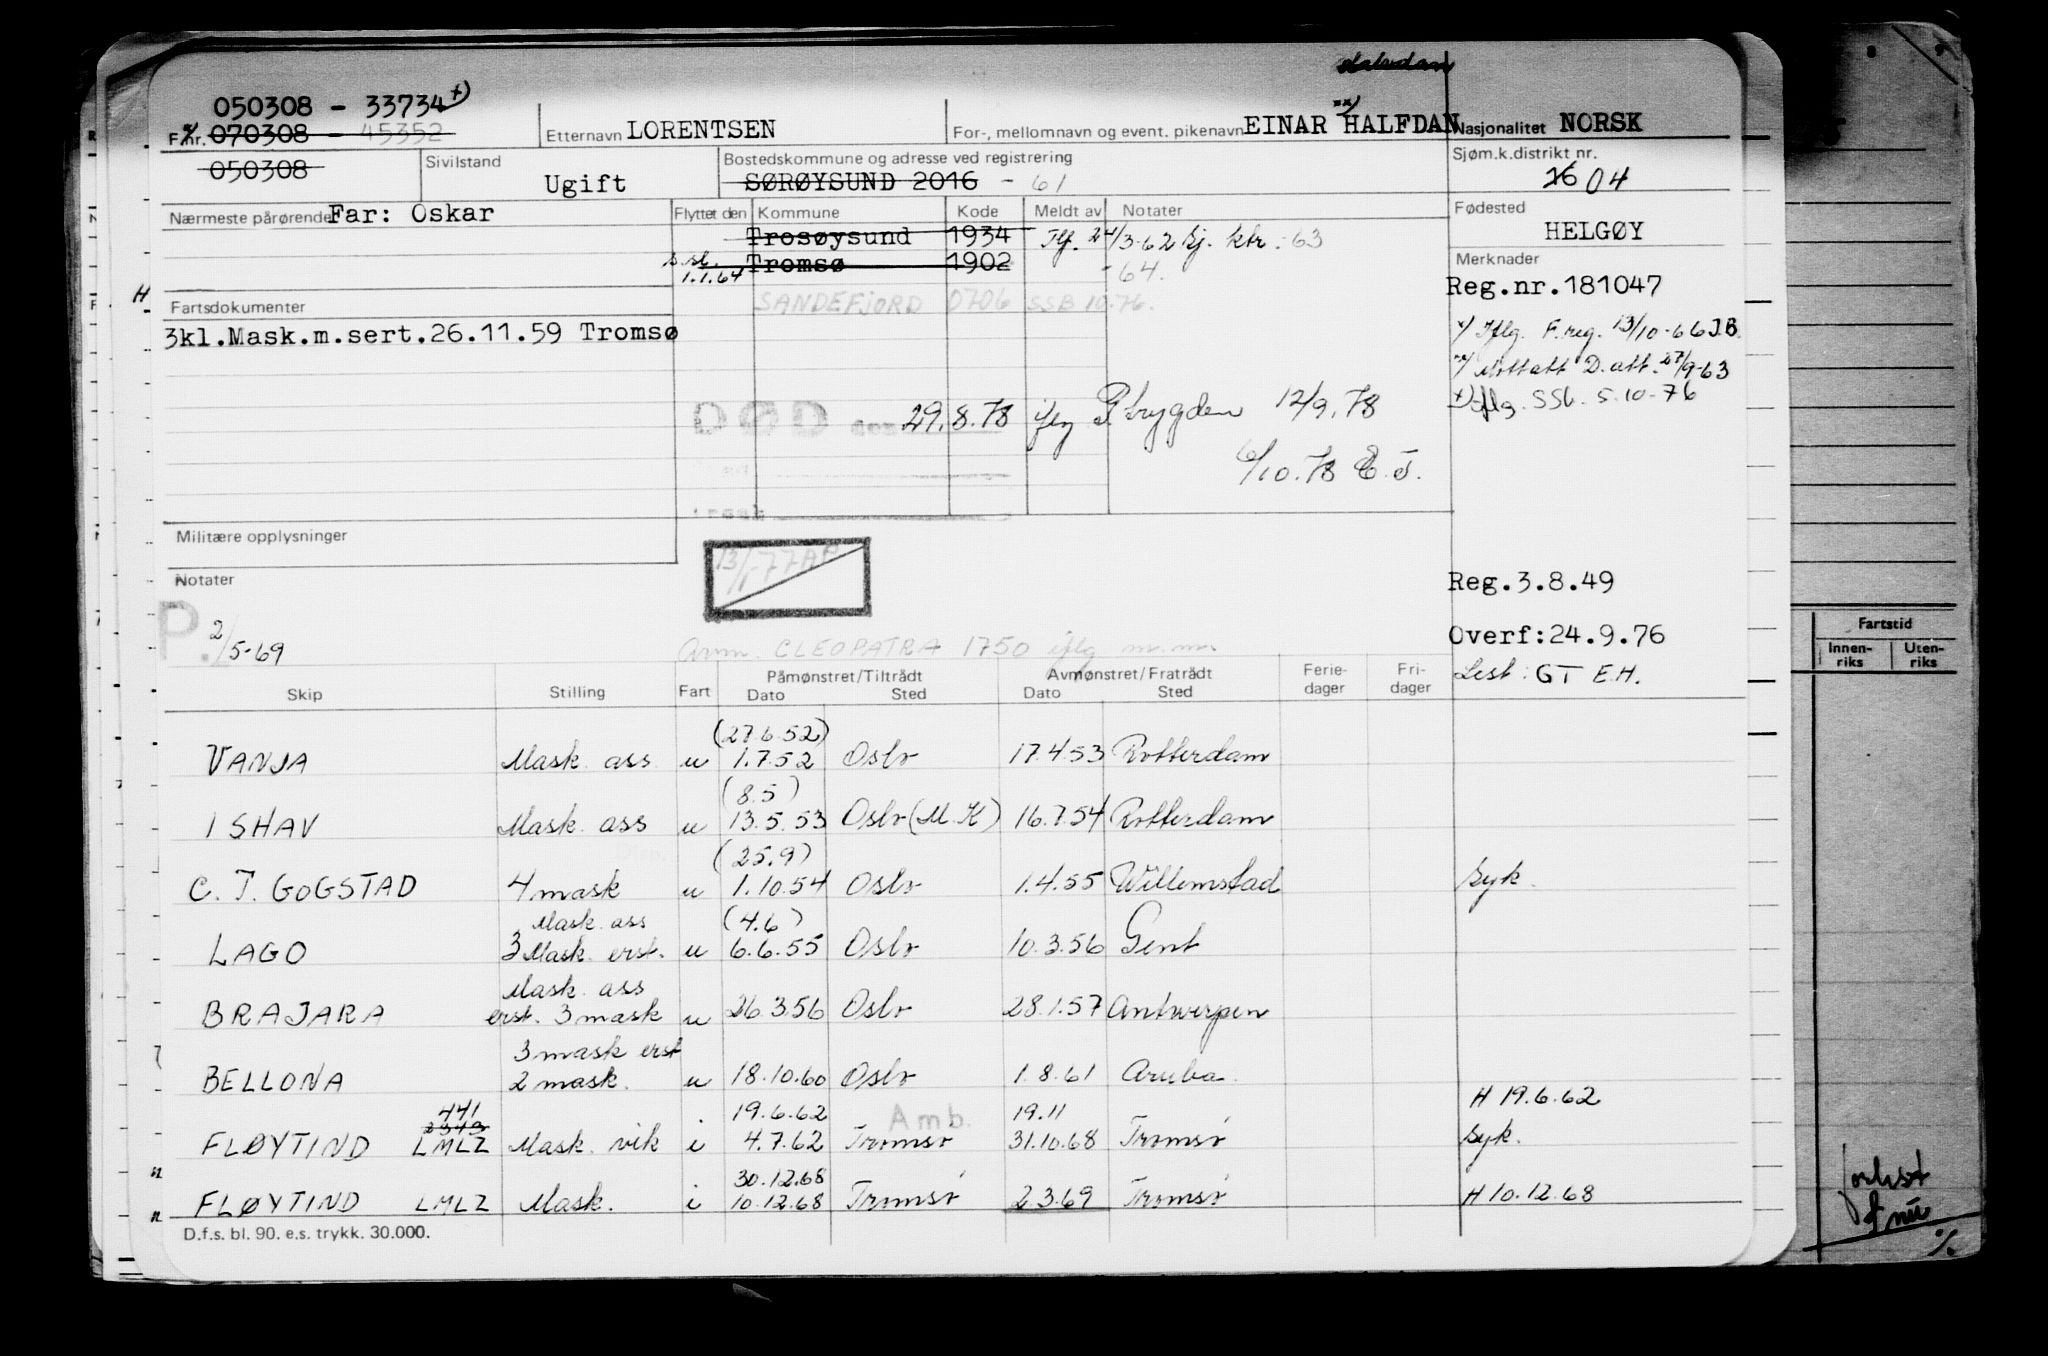 Halvdan
050308 - 33734 x)
F.nr. 070308 - 45352
Etternavn LORENTSEN
For-, mellomnavn og event. pikenavn EINAR xx) HALFDAN
Nasjonalitet NORSK
050308
Sivilstand
Ugift
Bostedskommune og adresse ved registrering
SØRØYSUND 2016 - 61
Sjøm.k.distrikt nr.
16 04
Nærmeste pårørende Far: Oskar
Flyttet den Kommune Kode Meldt av Notater
Fødested
HELGØY
Trosøysund 1934 Tlf. 24/3-62 Sj. ktr. -63
s.sl. 1.1.64 Tromsø 1902 - 64.
SANDEFJORD 0706 SSB 10.76.
Merknader
Reg.nr.181047
x) Iflg. F.reg. 13/10-66 J.B.
xx) Mottatt D.att. 27/9-63
x) Iflg. SSb. 5.10-76
H
Fartsdokumenter
3kl.Mask.m.sert.26.11.59 Tromsø
DØD den 29.8.78 iflg P.trygden 12/9.78
6/10.78 E.J.
Militære opplysninger
13/1-77 AP
Notater
P. 2/5-69
Reg.3.8.49
Overf:24.9.76
Anm. CLEOPATRA 1750 iflg m.m.
Lest: GT E.H.
Skip Stilling Fart Påmønstret/Tiltrådt Dato Sted Avmønstret/Fratrådt Dato Sted Ferie-dager Fri-dager
(27.6.52)
VANJA Mask. ass u 1.7.52 Oslo 17.4.53 Rotterdam
(8.5)
ISHAV Mask. ass u 13.5.53 Oslo (M.K) 16.7.54 Rotterdam
(25.9)
C. T. GOGSTAD 4 mask u 1.10.54 Oslo 1.4.55 Willemstad syk.
Mask. ass (4.6)
LAGO 3 Mask. erst. u 6.6.55 Oslo 10.3.56 Gent
Mask. ass
BRAJARA erst. 3 mask u 26.3.56 Oslo 28.1.57 Antwerpen
3 mask erst
BELLONA 2 mask. u 18.10.60 Oslo 1.8.61 Aruba.
441 19.6.62 Amb. 19.11 H 19.6.62
2343
FLØYTIND LMLZ Mask. vik i 4.7.62 Tromsø 31.10.68 Tromsø syk.
30.12.68
FLØYTIND LMLZ Mask. i 10.12.68 Tromsø 2.3.69 Tromsø H 10.12.68
D.f.s. bl. 90. e.s. trykk. 30.000.
Fartstid
Innen-riks Uten-riks